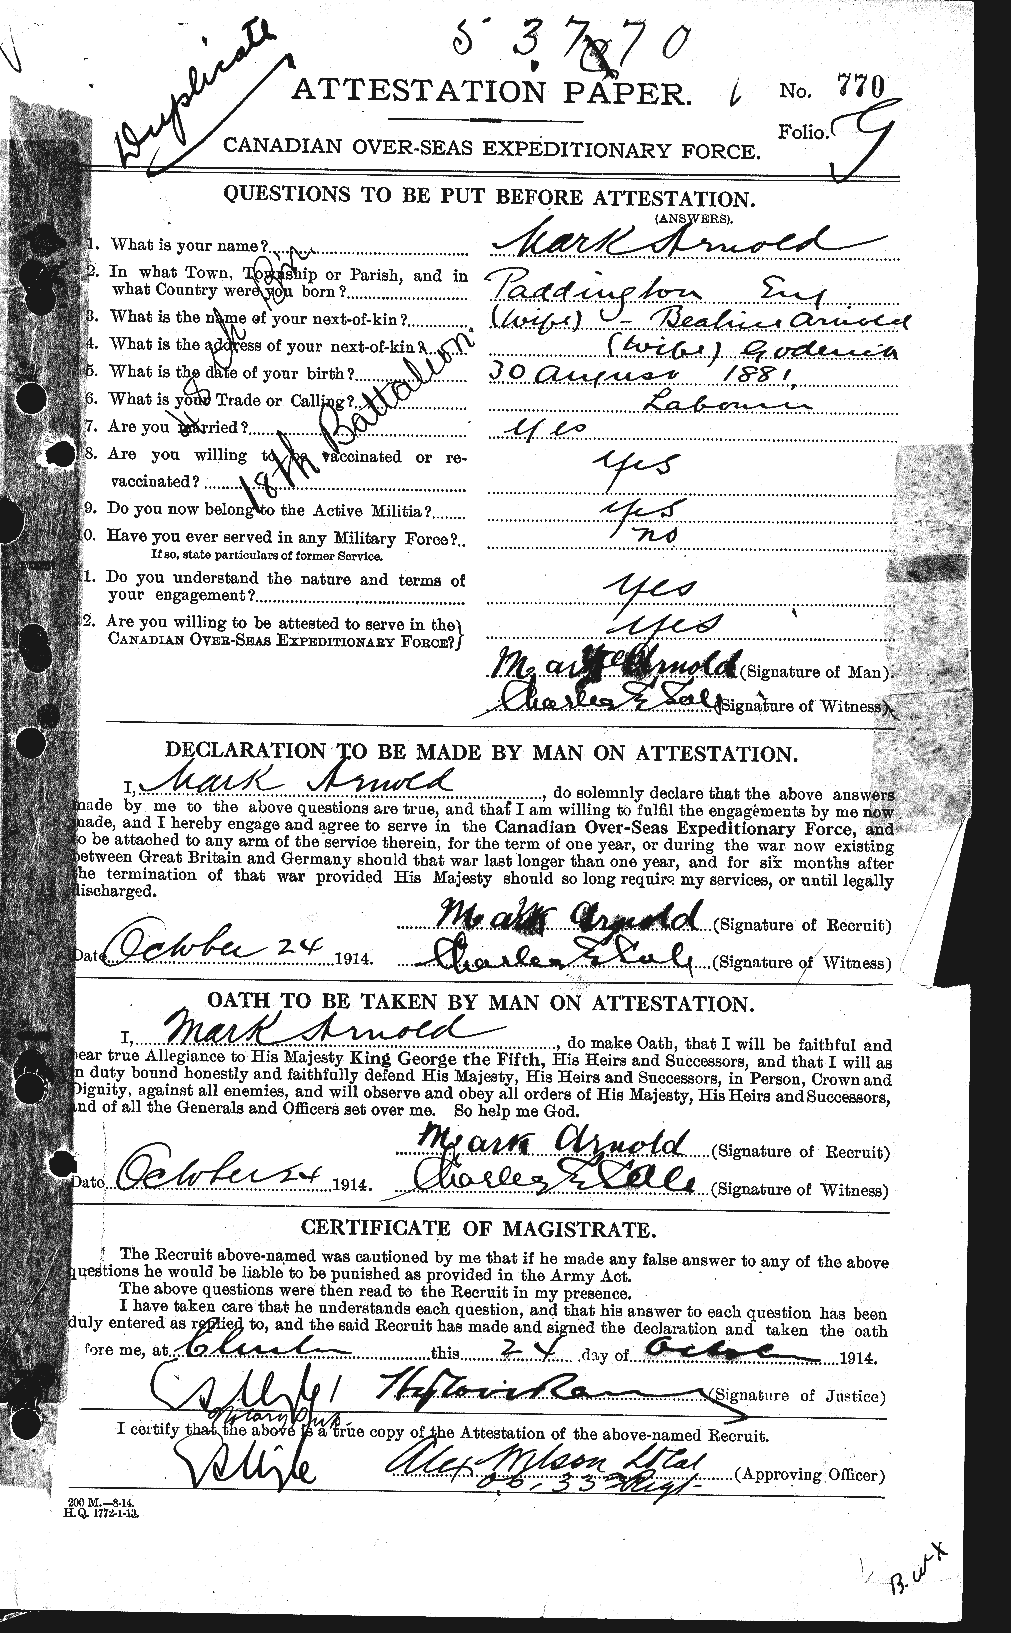 5 3 7 7 0
Duplicate
ATTESTATION PAPER.
No. 770
Folio.
CANADIAN OVER-SEAS EXPEDITIONARY FORCE.
QUESTIONS TO BE PUT BEFORE ATTESTATION.
(ANSWERS).
1. What is your name? Mark Arnold
2. In what Town, Township or Parish, and in
what Country were you born? Paddington Eng
3. What is the name of your next-of-kin? (wife) - Beatrice Arnold
4. What is the address of your next-of-kin? (wife) Goderich
5. What is the date of your birth? 30 August 1881
6. What is your Trade or Calling? Labourer
7. Are you married? yes
8. Are you willing to be vaccinated or re-
vaccinated? yes
9. Do you now belong to the Active Militia? yes
0. Have you ever served in any Military Force? no
If so, state particulars of former Service.
1. Do you understand the nature and terms of
your engagement? yes
2. Are you willing to be attested to serve in the
CANADIAN OVER-SEAS EXPEDITIONARY FORCE? yes
18th Battalion
Mark Arnold (Signature of Man).
Charles E (Signature of Witness)
DECLARATION TO BE MADE BY MAN ON ATTESTATION.
I, Mark Arnold, do solemnly declare that the above answers
made by me to the above questions are true, and that I am willing to fulfil the engagements by me now
made, and I hereby engage and agree to serve in the Canadian Over-Seas Expeditionary Force, and
to be attached to any arm of the service therein, for the term of one year, or during the war now existing
between Great Britain and Germany should that war last longer than one year, and for six months after
the termination of that war provided His Majesty should so long require my services, or until legally
discharged.
Mark Arnold (Signature of Recruit)
Date October 24 1914. Charles E (Signature of Witness)
OATH TO BE TAKEN BY MAN ON ATTESTATION.
I, Mark Arnold, do make Oath, that I will be faithful and
bear true Allegiance to His Majesty King George the Fifth, His Heirs and Successors, and that I will as
in duty bound honestly and faithfully defend His Majesty, His Heirs and Successors, in Person, Crown and
Dignity, against all enemies, and will observe and obey all orders of His Majesty, His Heirs and Successors,
and of all the Generals and Officers set over me. So help me God.
Mark Arnold (Signature of Recruit)
Date October 24 1914. Charles E (Signature of Witness)
CERTIFICATE OF MAGISTRATE.
The Recruit above-named was cautioned by me that if he made any false answer to any of the above
questions he would be liable to be punished as provided in the Army Act.
The above questions were then read to the Recruit in my presence.
I have taken care that he understands each question, and that his answer to each question has been
duly entered as replied to, and the said Recruit has made and signed the declaration and taken the oath
fore me, at Clinton this 24 day of October 1914.
(Signature of Justice)
Notary Pub.
I certify that the above is a true copy of the Attestation of the above-named Recruit.
Alex Wilson Lt Col (Approving Officer)
O.C. 33rd Regt
200 M.—8-14.
H.Q. 1772-1-13.